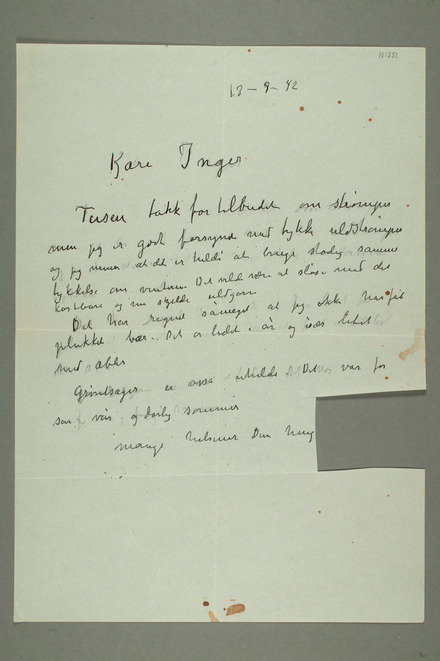 N1251
13-9-42
Kære Inger.
Tusen takk for tilbudet om strømper
men jeg er godt forsynt med tykke uldstrømper
og jeg mener at det er heldi at bruge stadig samme
tykkelse om vinteren. Det vild være at sløse med det
kostbare og nu sjeldne uldgarn
Det har regnet såmeget at jeg ikke har fåt
plukket bær. Det er lidet i år og især lidet
med æbler
Grøntsager er også Det var for
sen vår og dårlig sommer
mange hilsener Din